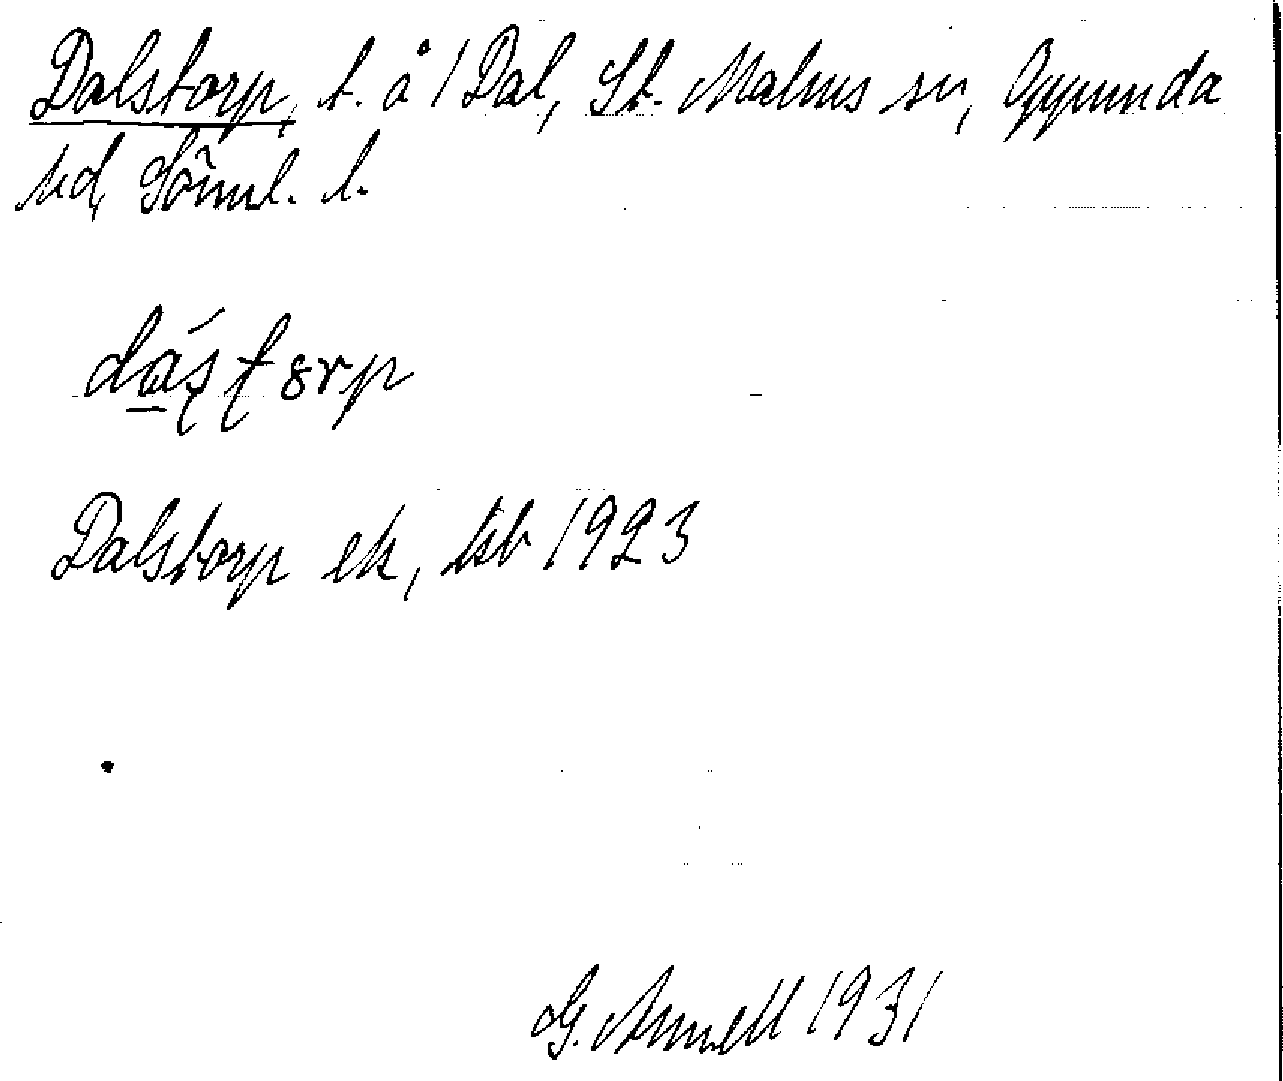 Dalstorp, t. å 1 Dal, St. Malms sn, Oppunda
hd, Söml. l.
dástorp
Dalstorp ek, ksb 1923
G. Arnell 1931